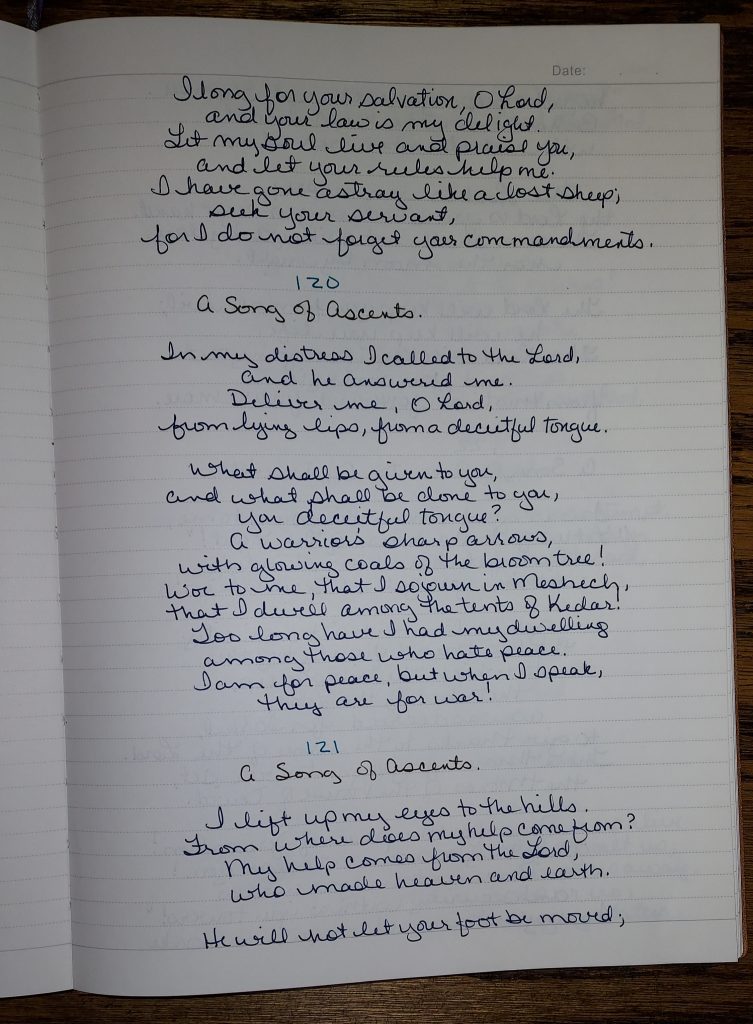 Date:
I long for your salvation, O Lord,
and your law is my delight.
Let my soul live and praise you,
and let your rules help me.
I have gone astray like a lost sheep;
seek your servant,
for I do not forget your commandments.
120
A Song of Ascents.
In my distress I called to the Lord,
and he answered me.
Deliver me, O Lord,
from lying lips, from a deceitful tongue.
What shall be given to you,
and what shall be done to you,
you deceitful tongue?
A warrior's sharp arrows,
with glowing coals of the broom tree!
Woe to me, that I sojourn in Meshech,
that I dwell among the tents of Kedar!
Too long have I had my dwelling
among those who hate peace.
I am for peace, but when I speak,
they are for war!
121
A Song of Ascents.
I lift up my eyes to the hills.
From where does my help come from?
My help comes from the Lord,
who made heaven and earth.
He will not let your foot be moved;